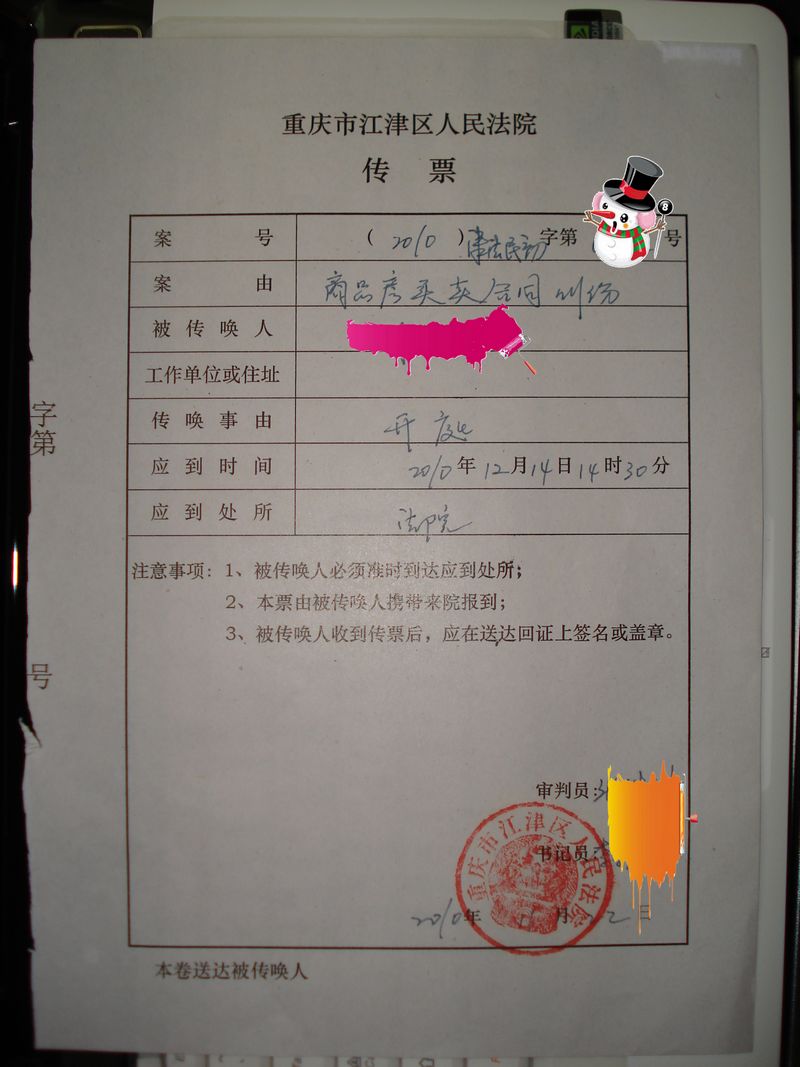 重庆市江津区人民法院
传 票
案 号 (2010)津法民初 字第 号
案 由 商品房买卖合同纠纷
被传唤人
工作单位或住址
传唤事由 开庭
应到时间 2010年12月14日14时30分
应到处所 法院
注意事项：1、被传唤人必须准时到达应到处所；
2、本票由被传唤人携带来院报到；
3、被传唤人收到传票后，应在送达回证上签名或盖章。
审判员：
书记员：
重庆市江津区人民法院
2010年11月22日
本卷送达被传唤人
字第
号
8